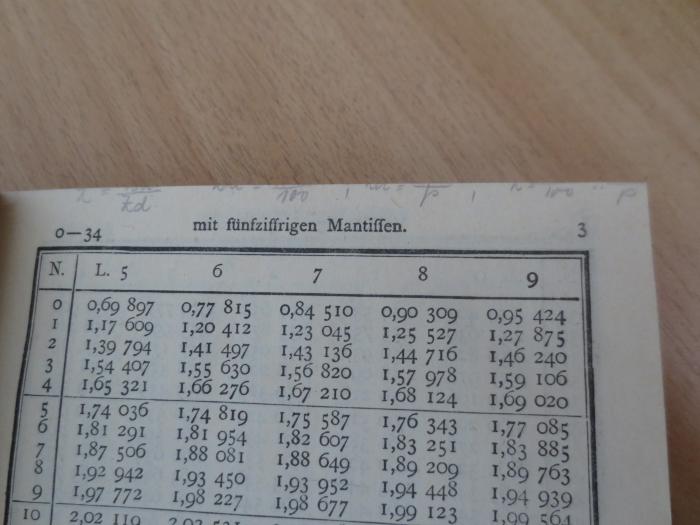 0—34 mit fünfziffrigen Mantiſſen. 3
N. L. 5 6 7 8 9
0 0,69 897 0,77 815 0,84 510 0,90 309 0,95 424
1 1,17 609 1,20 412 1,23 045 1,25 527 1,27 875
2 1,39 794 1,41 497 1,43 136 1,44 716 1,46 240
3 1,54 407 1,55 630 1,56 820 1,57 978 1,59 106
4 1,65 321 1,66 276 1,67 210 1,68 124 1,69 020
5 1,74 036 1,74 819 1,75 587 1,76 343 1,77 085
6 1,81 291 1,81 954 1,82 607 1,83 251 1,83 885
7 1,87 506 1,88 081 1,88 649 1,89 209 1,89 763
8 1,92 942 1,93 450 1,93 952 1,94 448 1,94 939
9 1,97 772 1,98 227 1,98 677 1,99 123 1,99 564
10 2,02 119 2,02 531